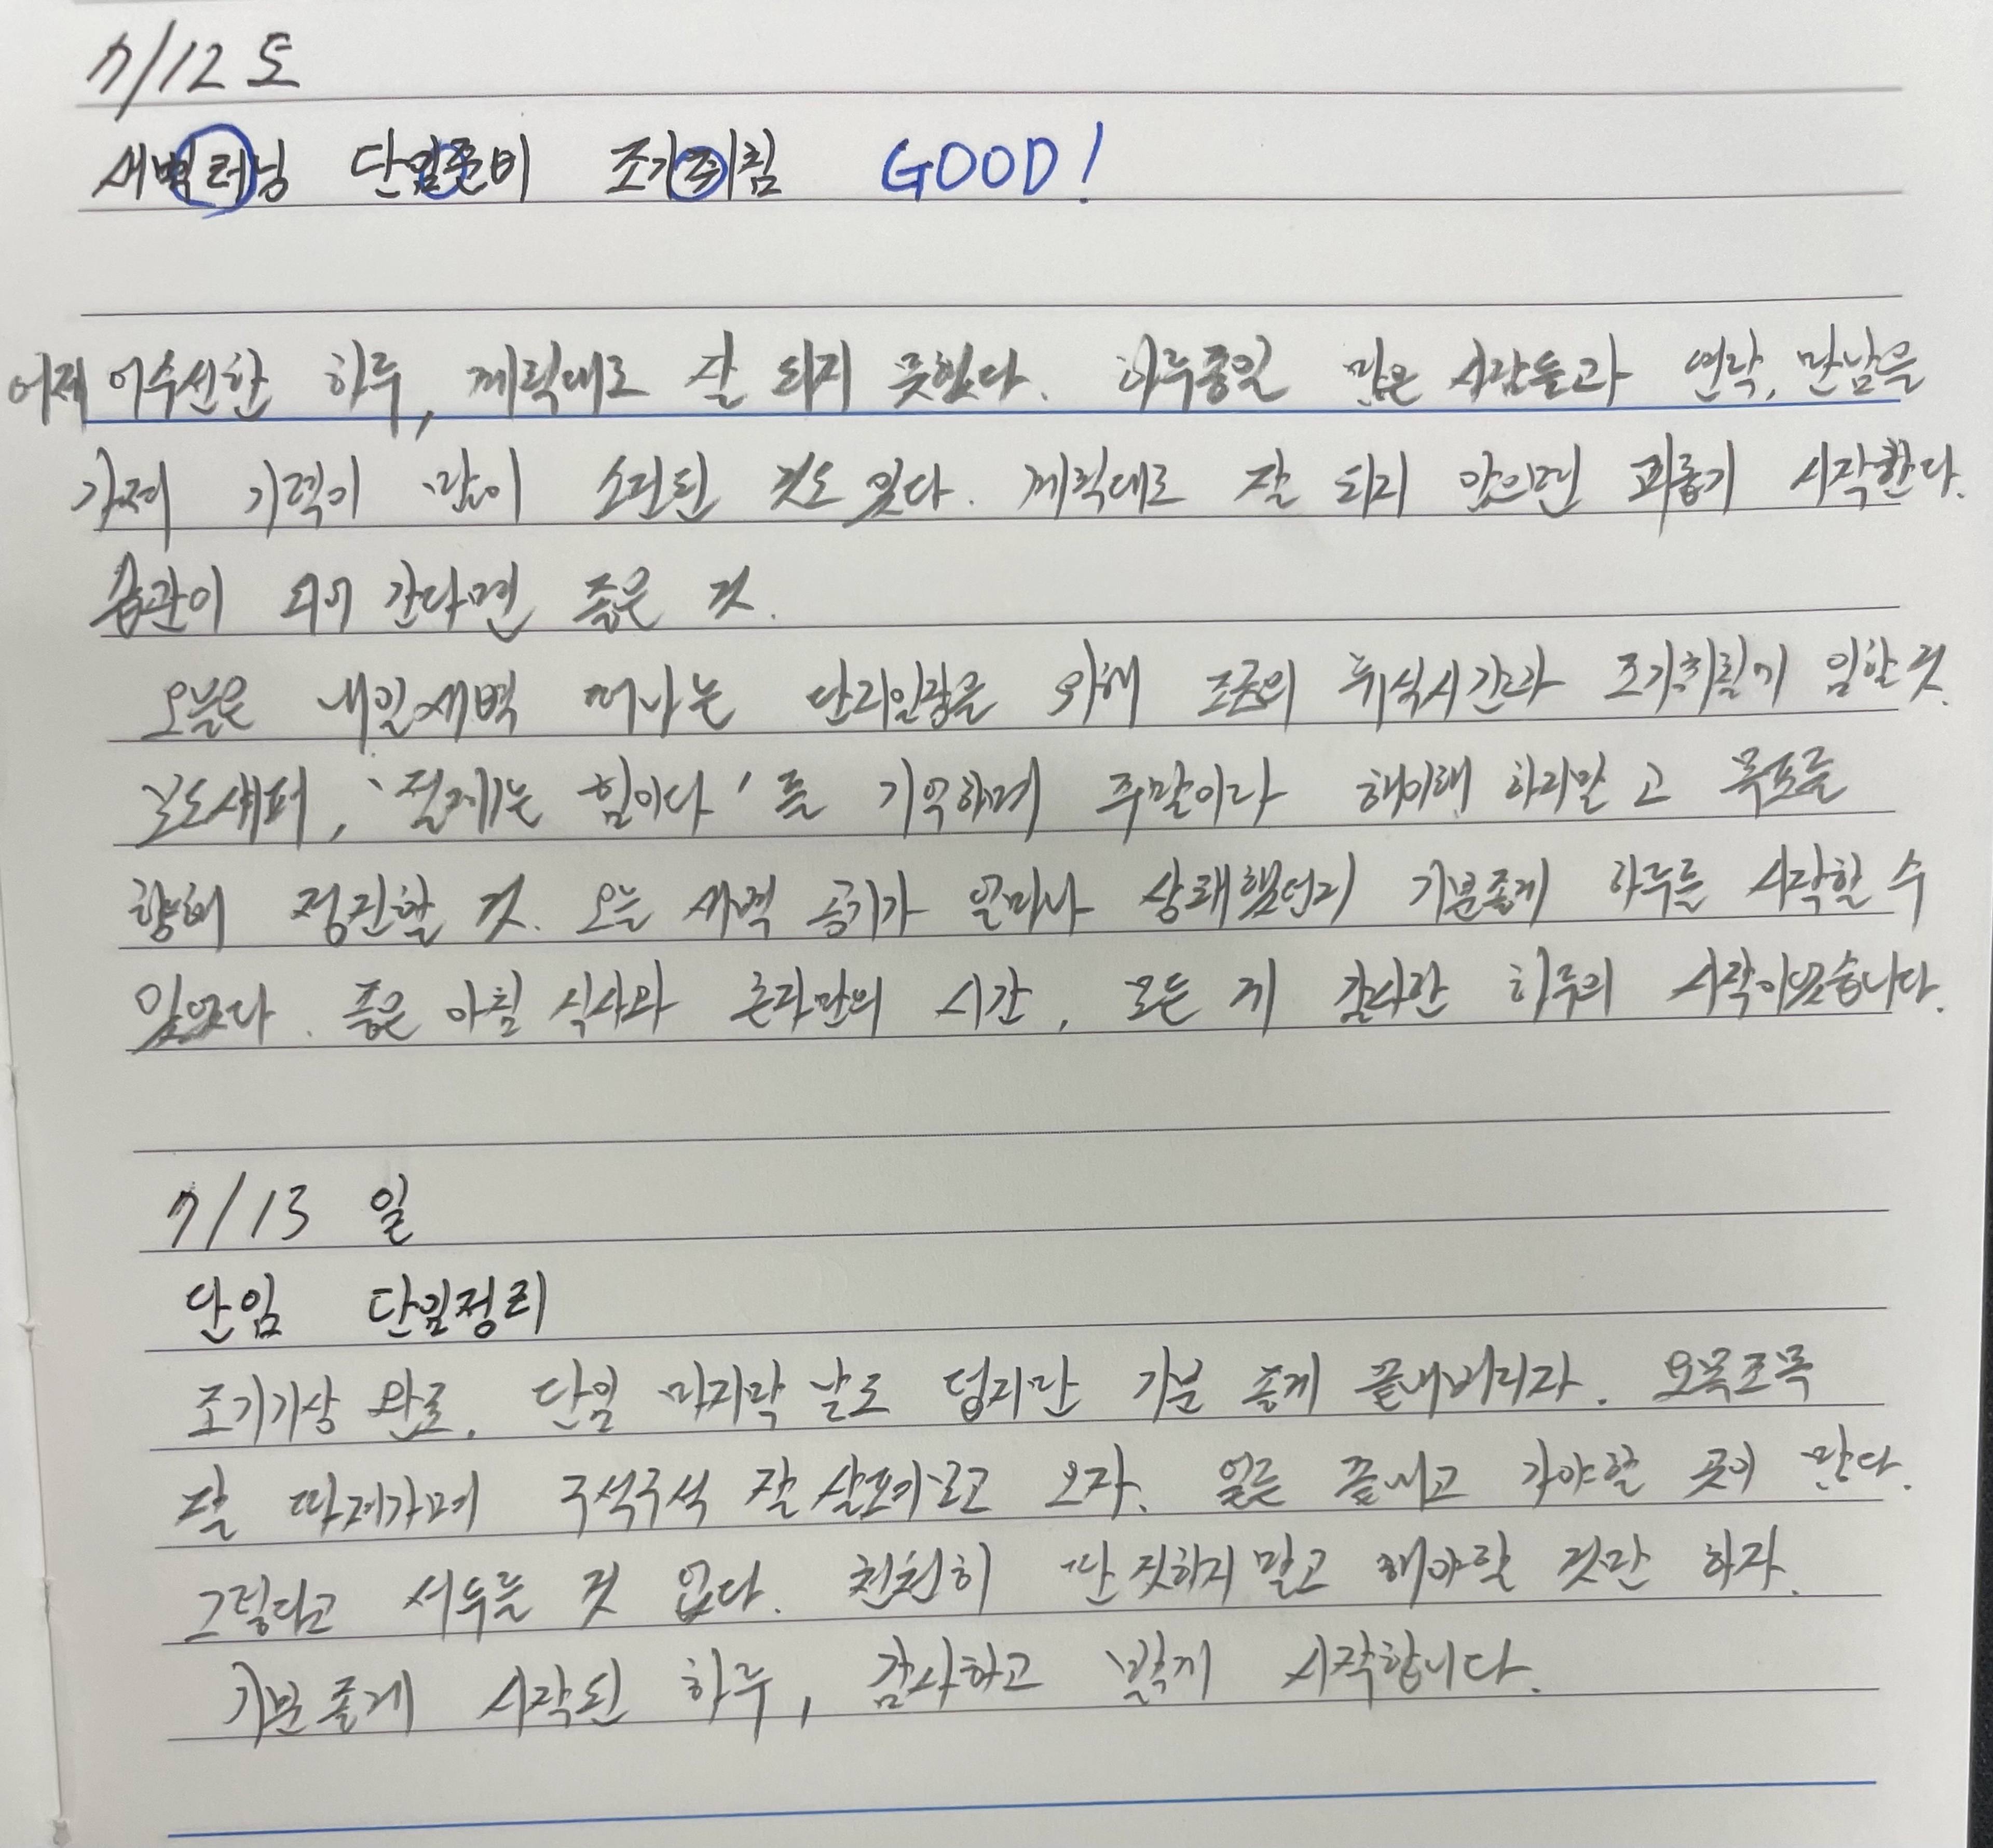 7/12 토
새벽러닝 단일준비 조기취침 GOOD!
어제 어수선한 하루, 계획대로 잘 되지 못했다. 하루종일 많은 사람들과 연락, 만남을
가져 기력이 많이 소진된 것도 있다. 계획대로 잘 되지 않으면 괴롭기 시작한다.
습관이 되어 간다면 좋은 것.
오늘은 내일새벽 떠나는 단리일정을 위해 조금의 휴식시간과 조기취침에 임할 것.
보도섀퍼, '절제는 힘이다'를 기억하며 주말이라 해이해 하지말고 목표를
향해 정진할 것. 오늘 새벽 공기가 얼마나 상쾌했던지 기분좋게 하루를 시작할 수
있었다. 좋은 아침 식사와 혼자만의 시간, 모든 게 감사한 하루의 시작이었습니다.
7/13 일
단임 단일정리
조기기상 완료. 단일 마지막 날로 덥지만 기분 좋게 끝내버리자. 오목조목
잘 따져가며 구석구석 잘 살표가려고 보자. 일른 끝내고 가야할 곳이 많다.
그렇다고 서두를 것 없다. 천천히 딴 짓하지 말고 해야할 것만 하자.
기분좋게 시작된 하루, 감사하고 밝게 시작합니다.